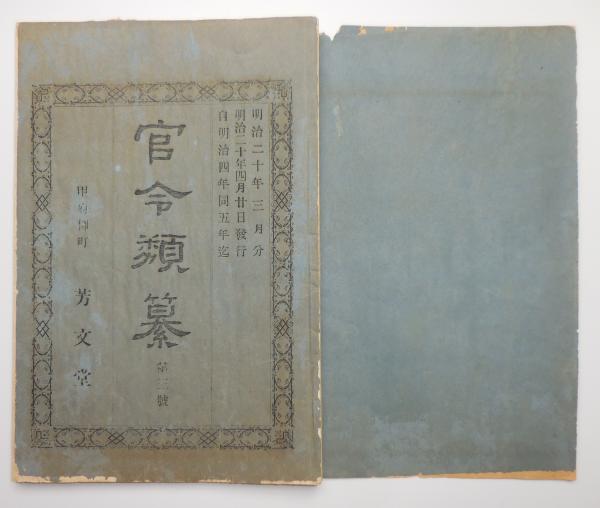 明治二十年三月分
明治二十年四月廿日發行
自明治四年同五年迄
官令類纂
第三號
甲府柳町
芳文堂